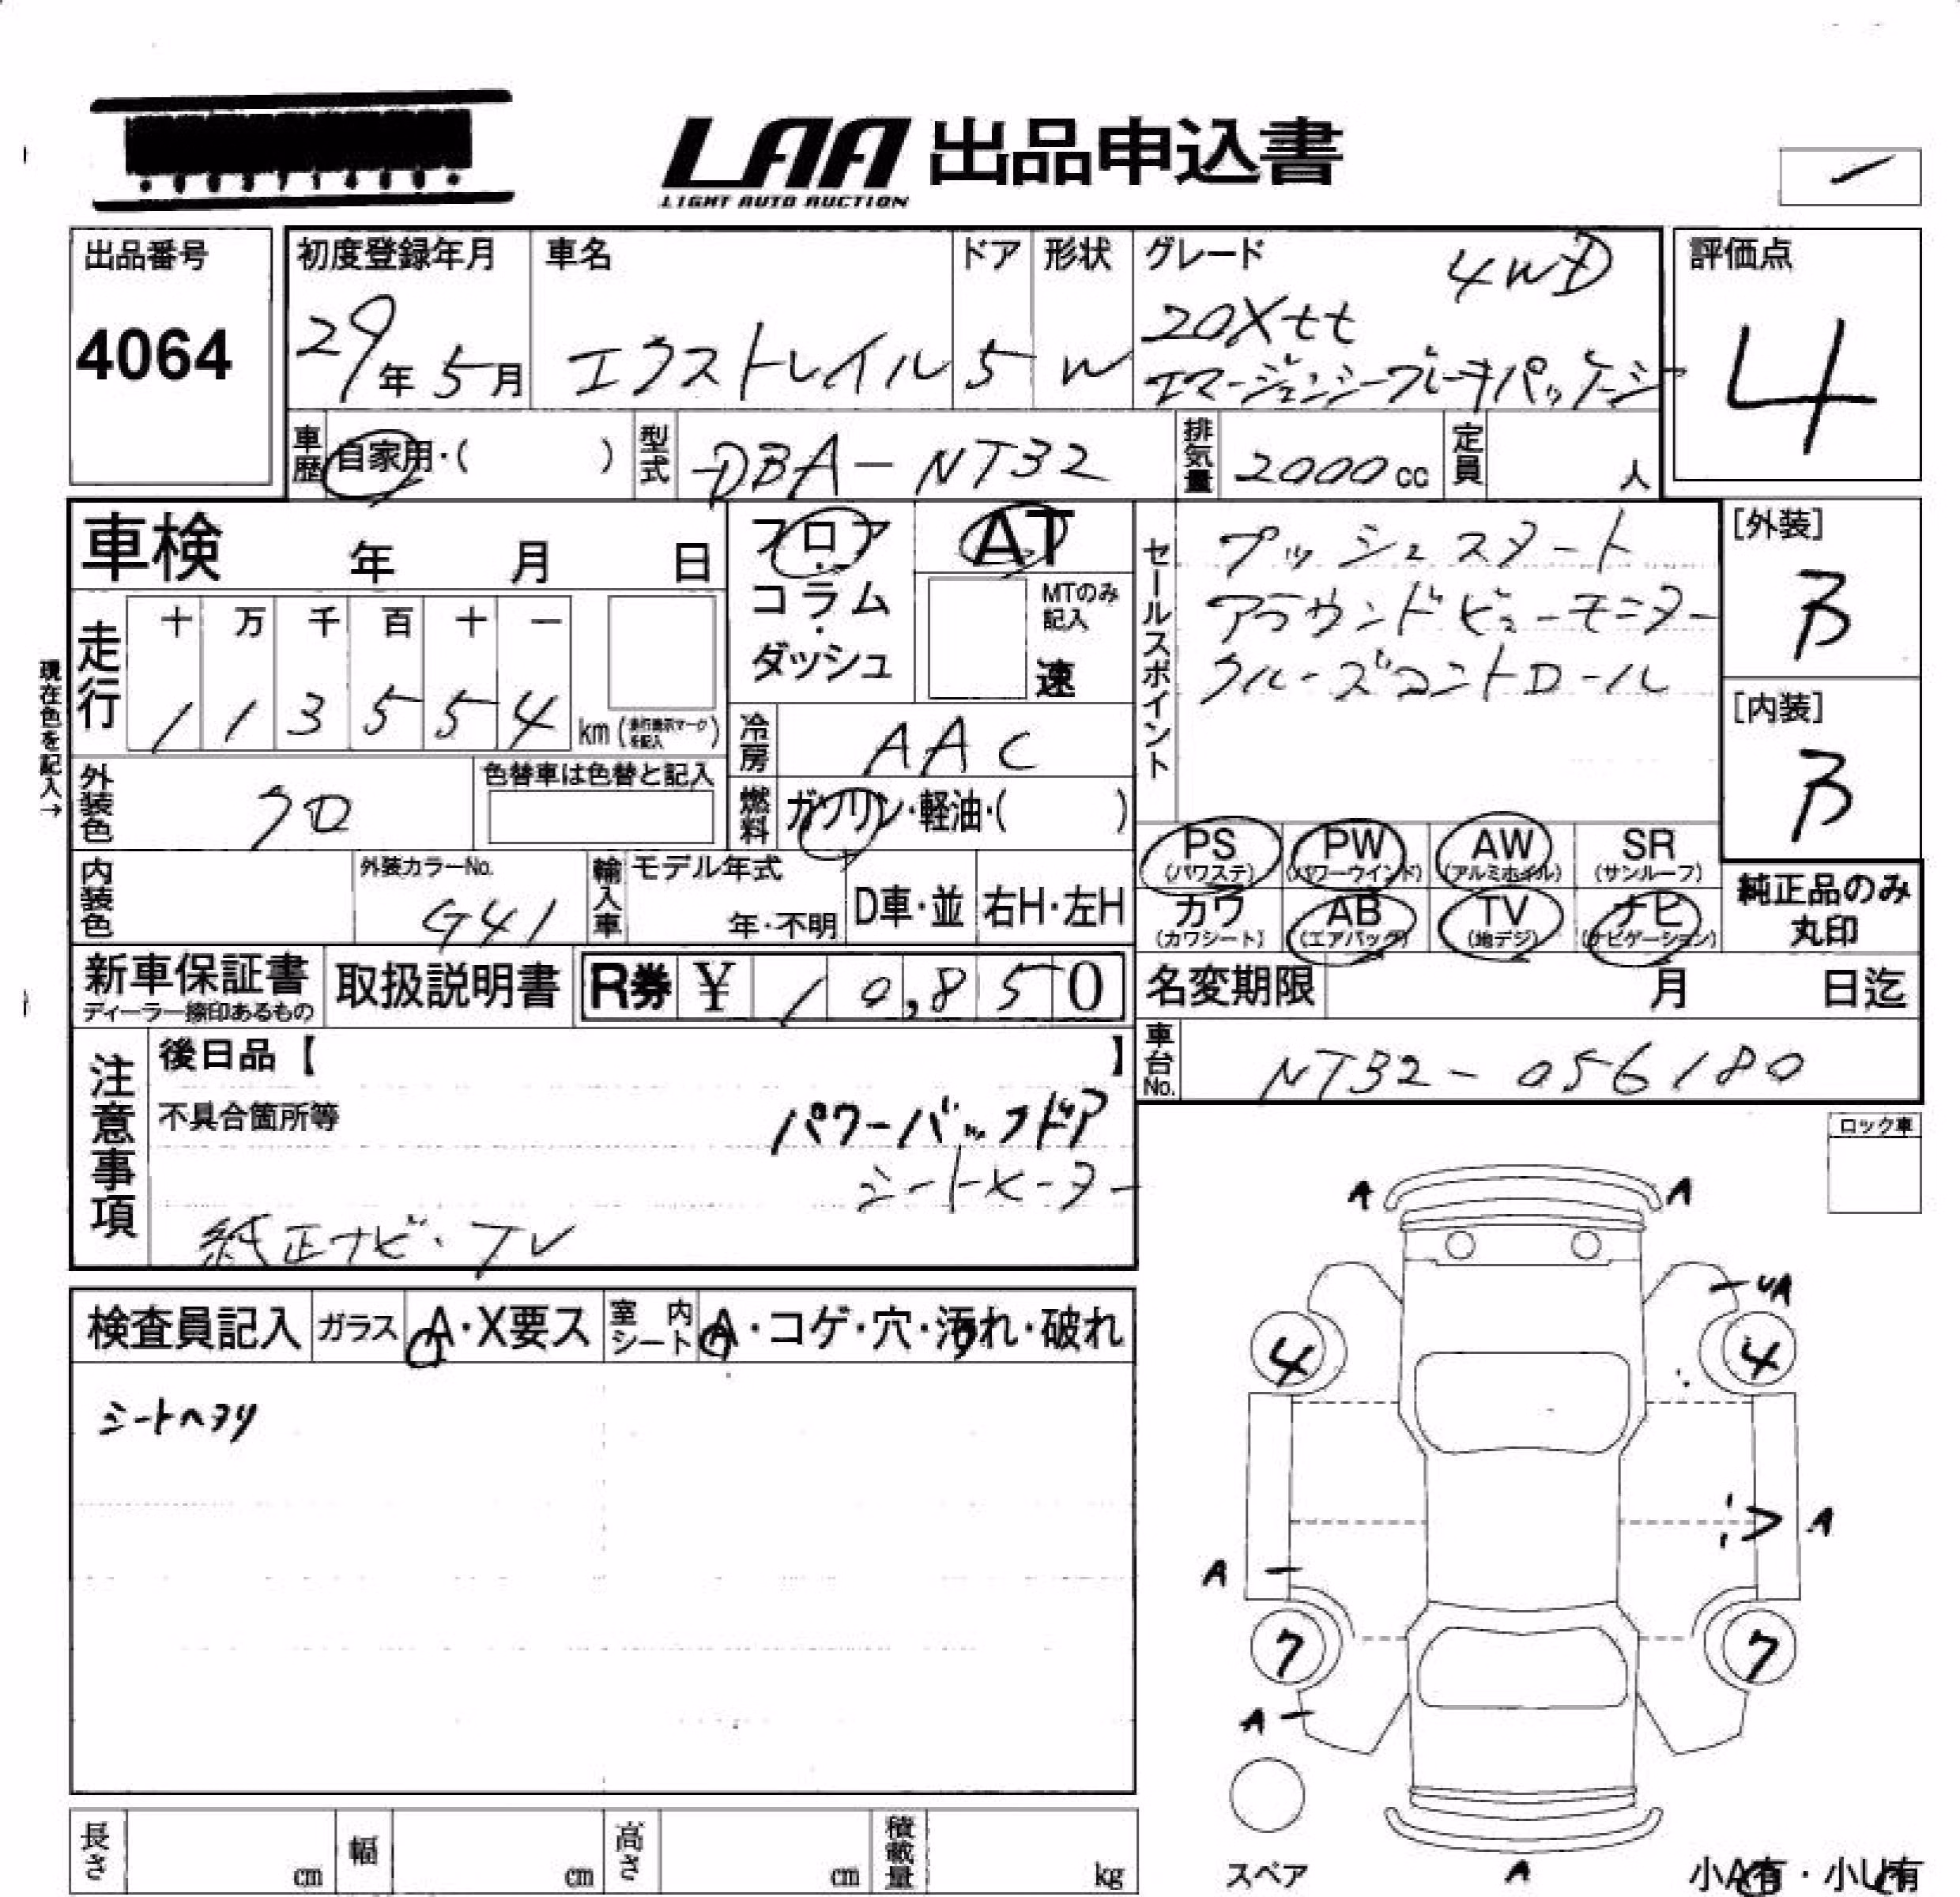 LAA 出品申込書
LIGHT AUTO AUCTION
出品番号
4064
初度登録年月
29年5月
車名
エクストレイル
ドア
5
形状
W
グレード
4WD
20Xtt
エマージェンシーブレーキパッケージ
評価点
4
車歴
自家用・( )
型式
DBA-NT32
排気量
2000cc
定員
人
車検 年 月 日
フロア
コラム
・
ダッシュ
AT
MTのみ
記入
速
セールスポイント
プッシュスタート
アラウンドビューモニター
クルーズコントロール
[外装]
B
[内装]
B
現在色を記入→
走行
十 万 千 百 十 一
1 1 3 5 5 4 km (走行表示マークを記入)
冷房
AAC
外装色
クロ
色替車は色替と記入
燃料
ガソリン・軽油・( )
PS (パワステ)
PW (パワーウインド)
AW (アルミホイル)
SR (サンルーフ)
カワ (カワシート)
AB (エアバッグ)
TV (地デジ)
ナビ (ナビゲーション)
純正品のみ
丸印
内装色
外装カラーNo.
G41
輸入車
モデル年式
年・不明
D車・並
右H・左H
新車保証書
ディーラー捺印あるもの
取扱説明書
R券 ¥ 10,850
名変期限 月 日迄
車台No.
NT32-056180
注意事項
後日品【 】
不具合箇所等
パワーバックドア
シートヒーター
純正ナビ・TV
ロック車
検査員記入
ガラス
A・X要ス
室内シート
A・コゲ・穴・汚れ・破れ
シートヘタリ
A A
UA
4 4
A
A
7 7
A
スペア
A
小A有・小U有
長さ cm
幅 cm
高さ cm
積載量 kg